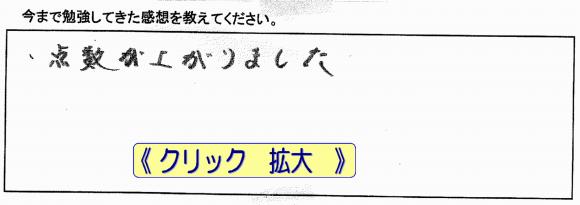 今まで勉強してきた感想を教えてください。
、点数が上がりました
《クリック 拡大 》